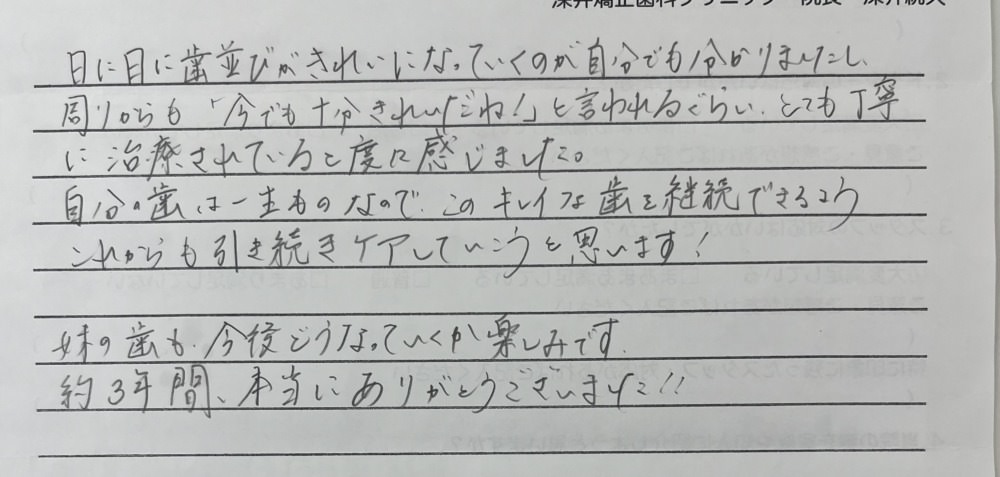 深井矯正歯科クリニック 院長 深井統久
日に日に歯並びがきれいになっていくのが自分でも分かりましたし、
周りからも「今でも十分きれいだね!」と言われるぐらい、とても丁寧
に治療されていると度に感じました。
自分の歯は一生ものなので、このキレイな歯を継続できるよう
これからも引き続きケアしていこうと思います!
妹の歯も、今後どうなっていくか楽しみです。
約3年間、本当にありがとうございました!!